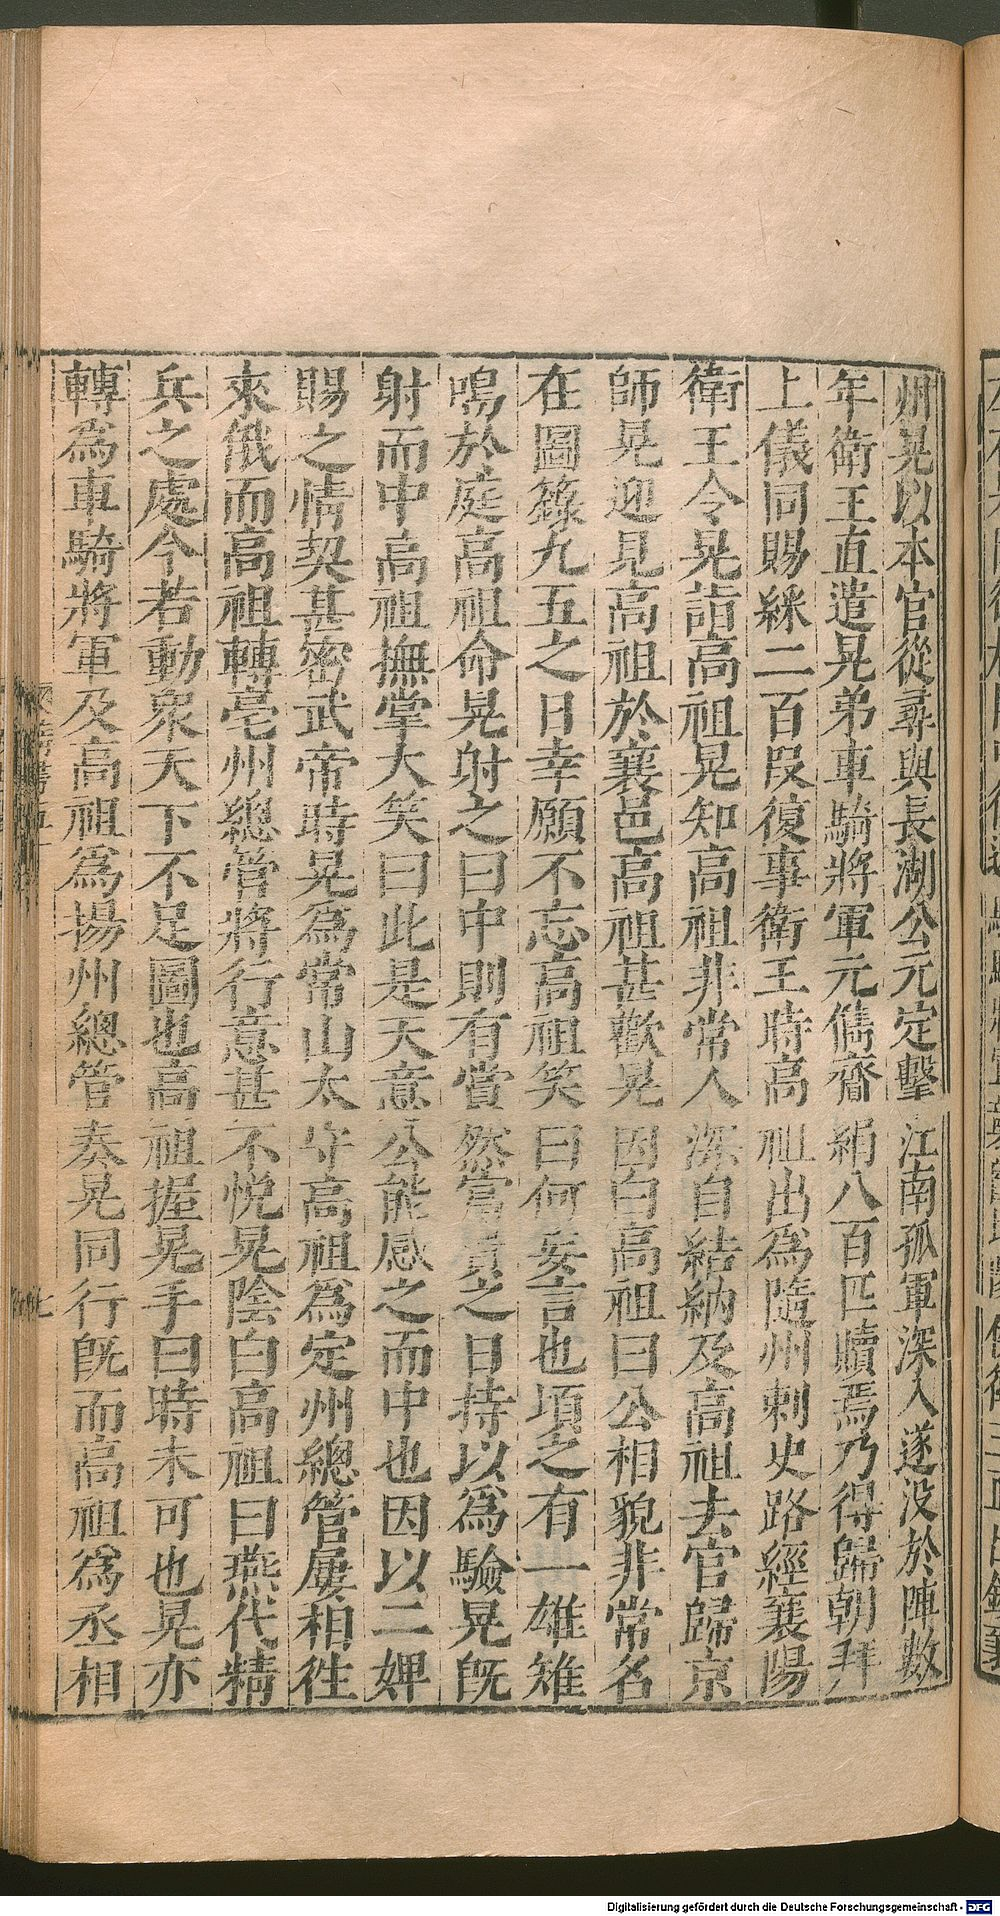 州晃以本官從尋與長湖公元定擊江南孤軍深入遂没於陣數
年衛王直遣晃弟車騎將軍元儁齎絹八百匹贖焉乃得歸朝拜
上儀同賜綵二百段復事衛王時高祖出爲隨州刺史路經襄陽
衛王令晃詣高祖晃知高祖非常人深自結納及高祖去官歸京
師晃迎見高祖於襄邑高祖甚歡晃因白高祖曰公相貌非常名
在圖籙九五之日幸願不忘高祖笑曰何妄言也頃之有一雄雉
鳴於庭高祖命晃射之曰中則有賞然富貴之日持以爲驗晃旣
射而中高祖撫掌大笑曰此是天意公能感之而中也因以二婢
賜之情契甚密武帝時晃爲常山太守高祖爲定州總管屢相徃
來俄而高祖轉亳州總管將行意甚不悅晃陰白高祖曰燕代精
兵之處今若動衆天下不足圖也高祖握晃手曰時未可也晃亦
轉爲車騎將軍及高祖爲揚州總管奏晃同行旣而高祖爲丞相
七
Digitalisierung gefördert durch die Deutsche Forschungsgemeinschaft - DFG